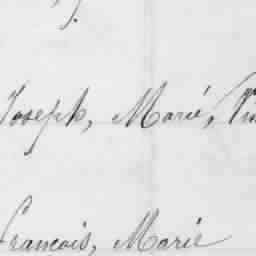 Joseph, Marié,
François, Marie